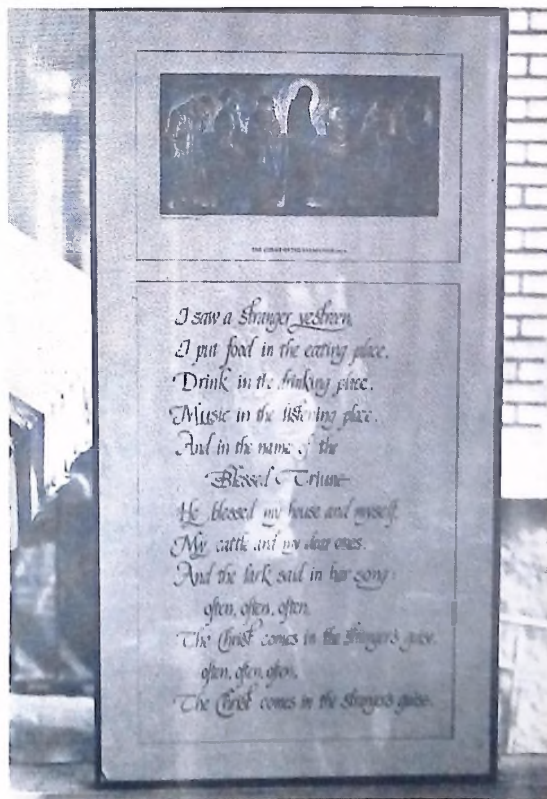 I saw a stranger yestreen,
I put food in the eating place,
Drink in the drinking place,
Music in the listening place.
And in the name of the
Blessed Triune
He blessed my house and myself.
My cattle and my dear ones.
And the lark said in her song:
often, often, often,
The Christ comes in the stranger's guise.
often, often, often,
The Christ comes in the stranger's guise.